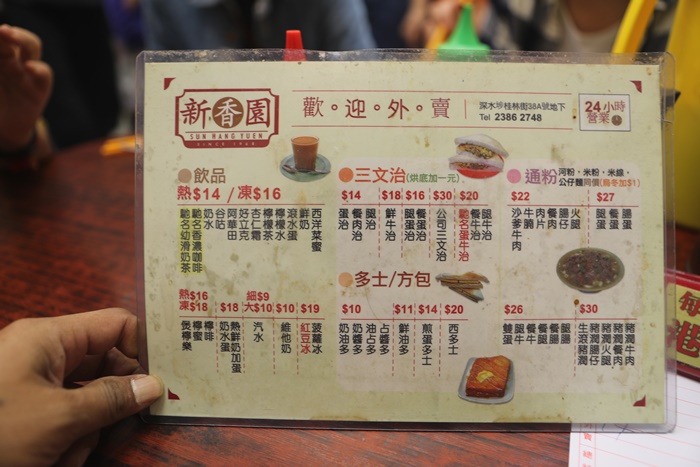 新香園
SUN HANG YUEN
SINCE 1968
歡。迎。外。賣
深水埗桂林街38A號地下
Tel 2386 2748
24小時
營業
飲品
熱$14 / 凍$16
馳名幼滑奶茶
馳名香濃咖啡
奶水
谷咕
阿華田
好立克
杏仁霜
檸檬茶
檸檬水
滾水蛋
鮮奶
西洋菜蜜
熱$16
凍$18
煲檸樂
檸蜜
檸啡
$18
奶水蛋
熱鮮奶加蛋
細$9
大$10
汽水
$10
維他奶
$19
紅豆冰
菠蘿冰
三文治(烘底加一元)
$14
蛋治
餐肉治
腿治
$18
鮮牛治
$16
腿蛋治
餐蛋治
$30
公司三文治
$20
馳名蛋牛治
餐牛治
腿牛治
多士/方包
$10
奶油多
奶醬多
油占多
占醬多
$11
鮮油多
$14
煎蛋多士
$20
西多士
通粉
河粉，米粉，米線，
公仔麵同價(烏冬加$1)
$22
沙爹牛肉
牛腩
肉片
餐肉
腸仔
火腿
$27
腿蛋
餐蛋
腸蛋
$26
雙蛋
腿牛
餐牛
餐腿
餐腸
腿腸
$30
生滾豬潤
豬潤腸仔
豬潤火腿
豬潤餐肉
豬潤牛肉